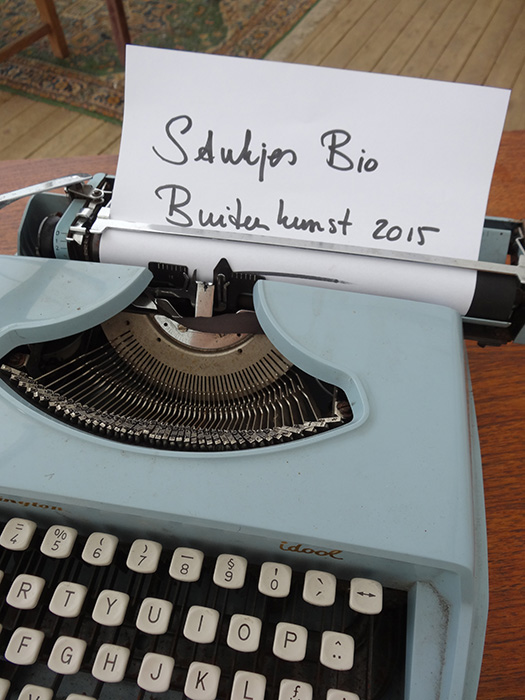 Stukjes Bio
Buitenkunst 2015
idool
= 4 % 5 ( 6 ) 7 _ 8 § 9 ! 0
R T Y U I O P
F G H J K L £